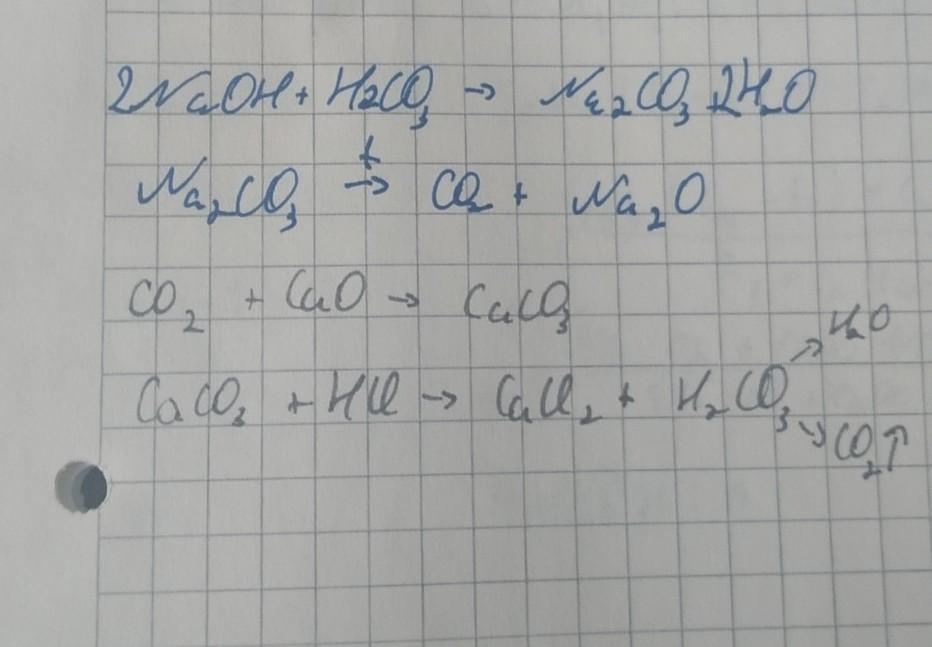 2NaOH + H₂CO₃ → Na₂CO₃ 2H₂O
Na₂CO₃ →ᵗ CO₂ + Na₂O
CO₂ + CaO → CaCO₃
CaCO₃ + HCl → CaCl₂ + H₂CO₃ ↗ H₂O ↘ CO₂↑